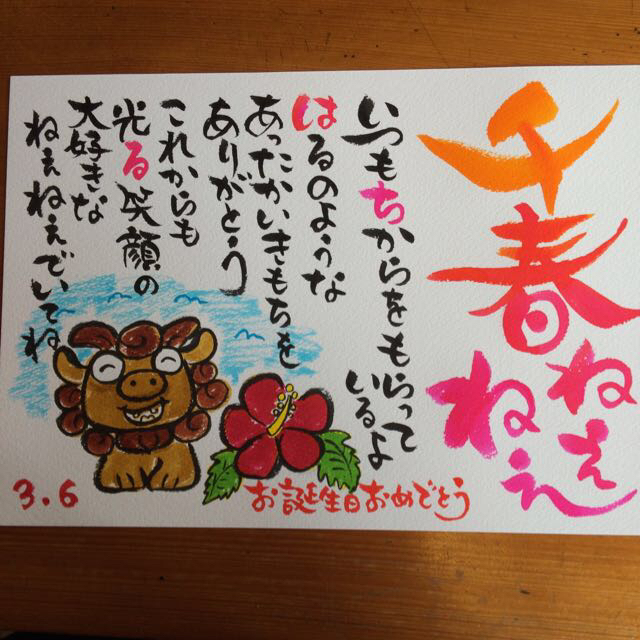 千春
ねぇ
ねぇ
いつもちからをもらって
いるよ
はるのような
あったかいきもちを
ありがとう
これからも
光る笑顔の
大好きな
ねぇねぇでいてね
お誕生日おめでとう
3.6